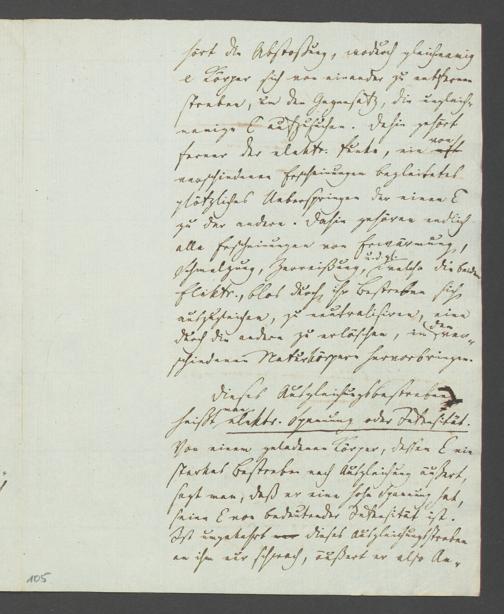 hört die Abstoßung, wodurch gleichnamig
e Körper sich von einander zu entfernen
streben, im den Gegensatz, die ungleich-
namige E aufzusuchen. Dahin gehört
ferner der elektr. Funke, ein von
verschiedenen Erscheinungen begleitetes
plötzliches Ueberspringen der einen E
zu der andern. Dahin gehören endlich
alle Erscheinungen von Erwärmung,
Schmelzung, Zerreißung, u. dgl. welche die beiden
Elektr., blos durch ihr Bestreben sich
auszugleichen, zu neutralisiren, eine
durch die andere zu erlöschen, in den ver-
schiedenen Naturkörpern hervorbringen.
Dieses Ausgleichungsbestreben
heißt man elektr. Spannung oder Intensität.
Von einem geladenen Körper, dessen E ein
starkes Bestreben nach Ausgleichung äußert,
sagt man, daß er eine hohe Spannung hat,
seine E von bedeutender Intensität ist.
Ist umgekehrt dieses Ausgleichungsbestreben
an ihm nur schwach, äußert er also An-
105